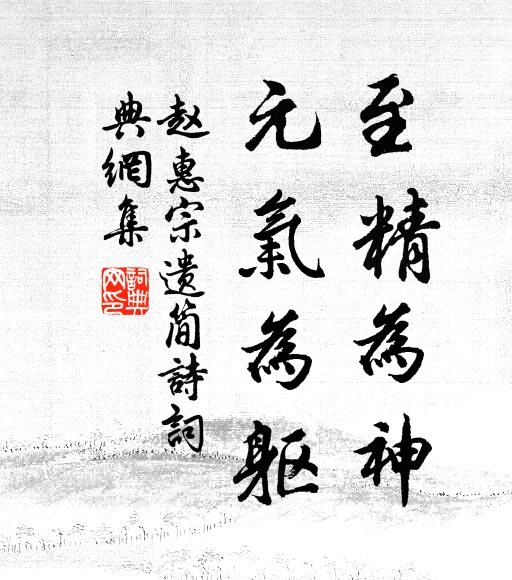 至精為神
元氣為躯
赵惠宗遗简詩詞
典網集
詞典网印